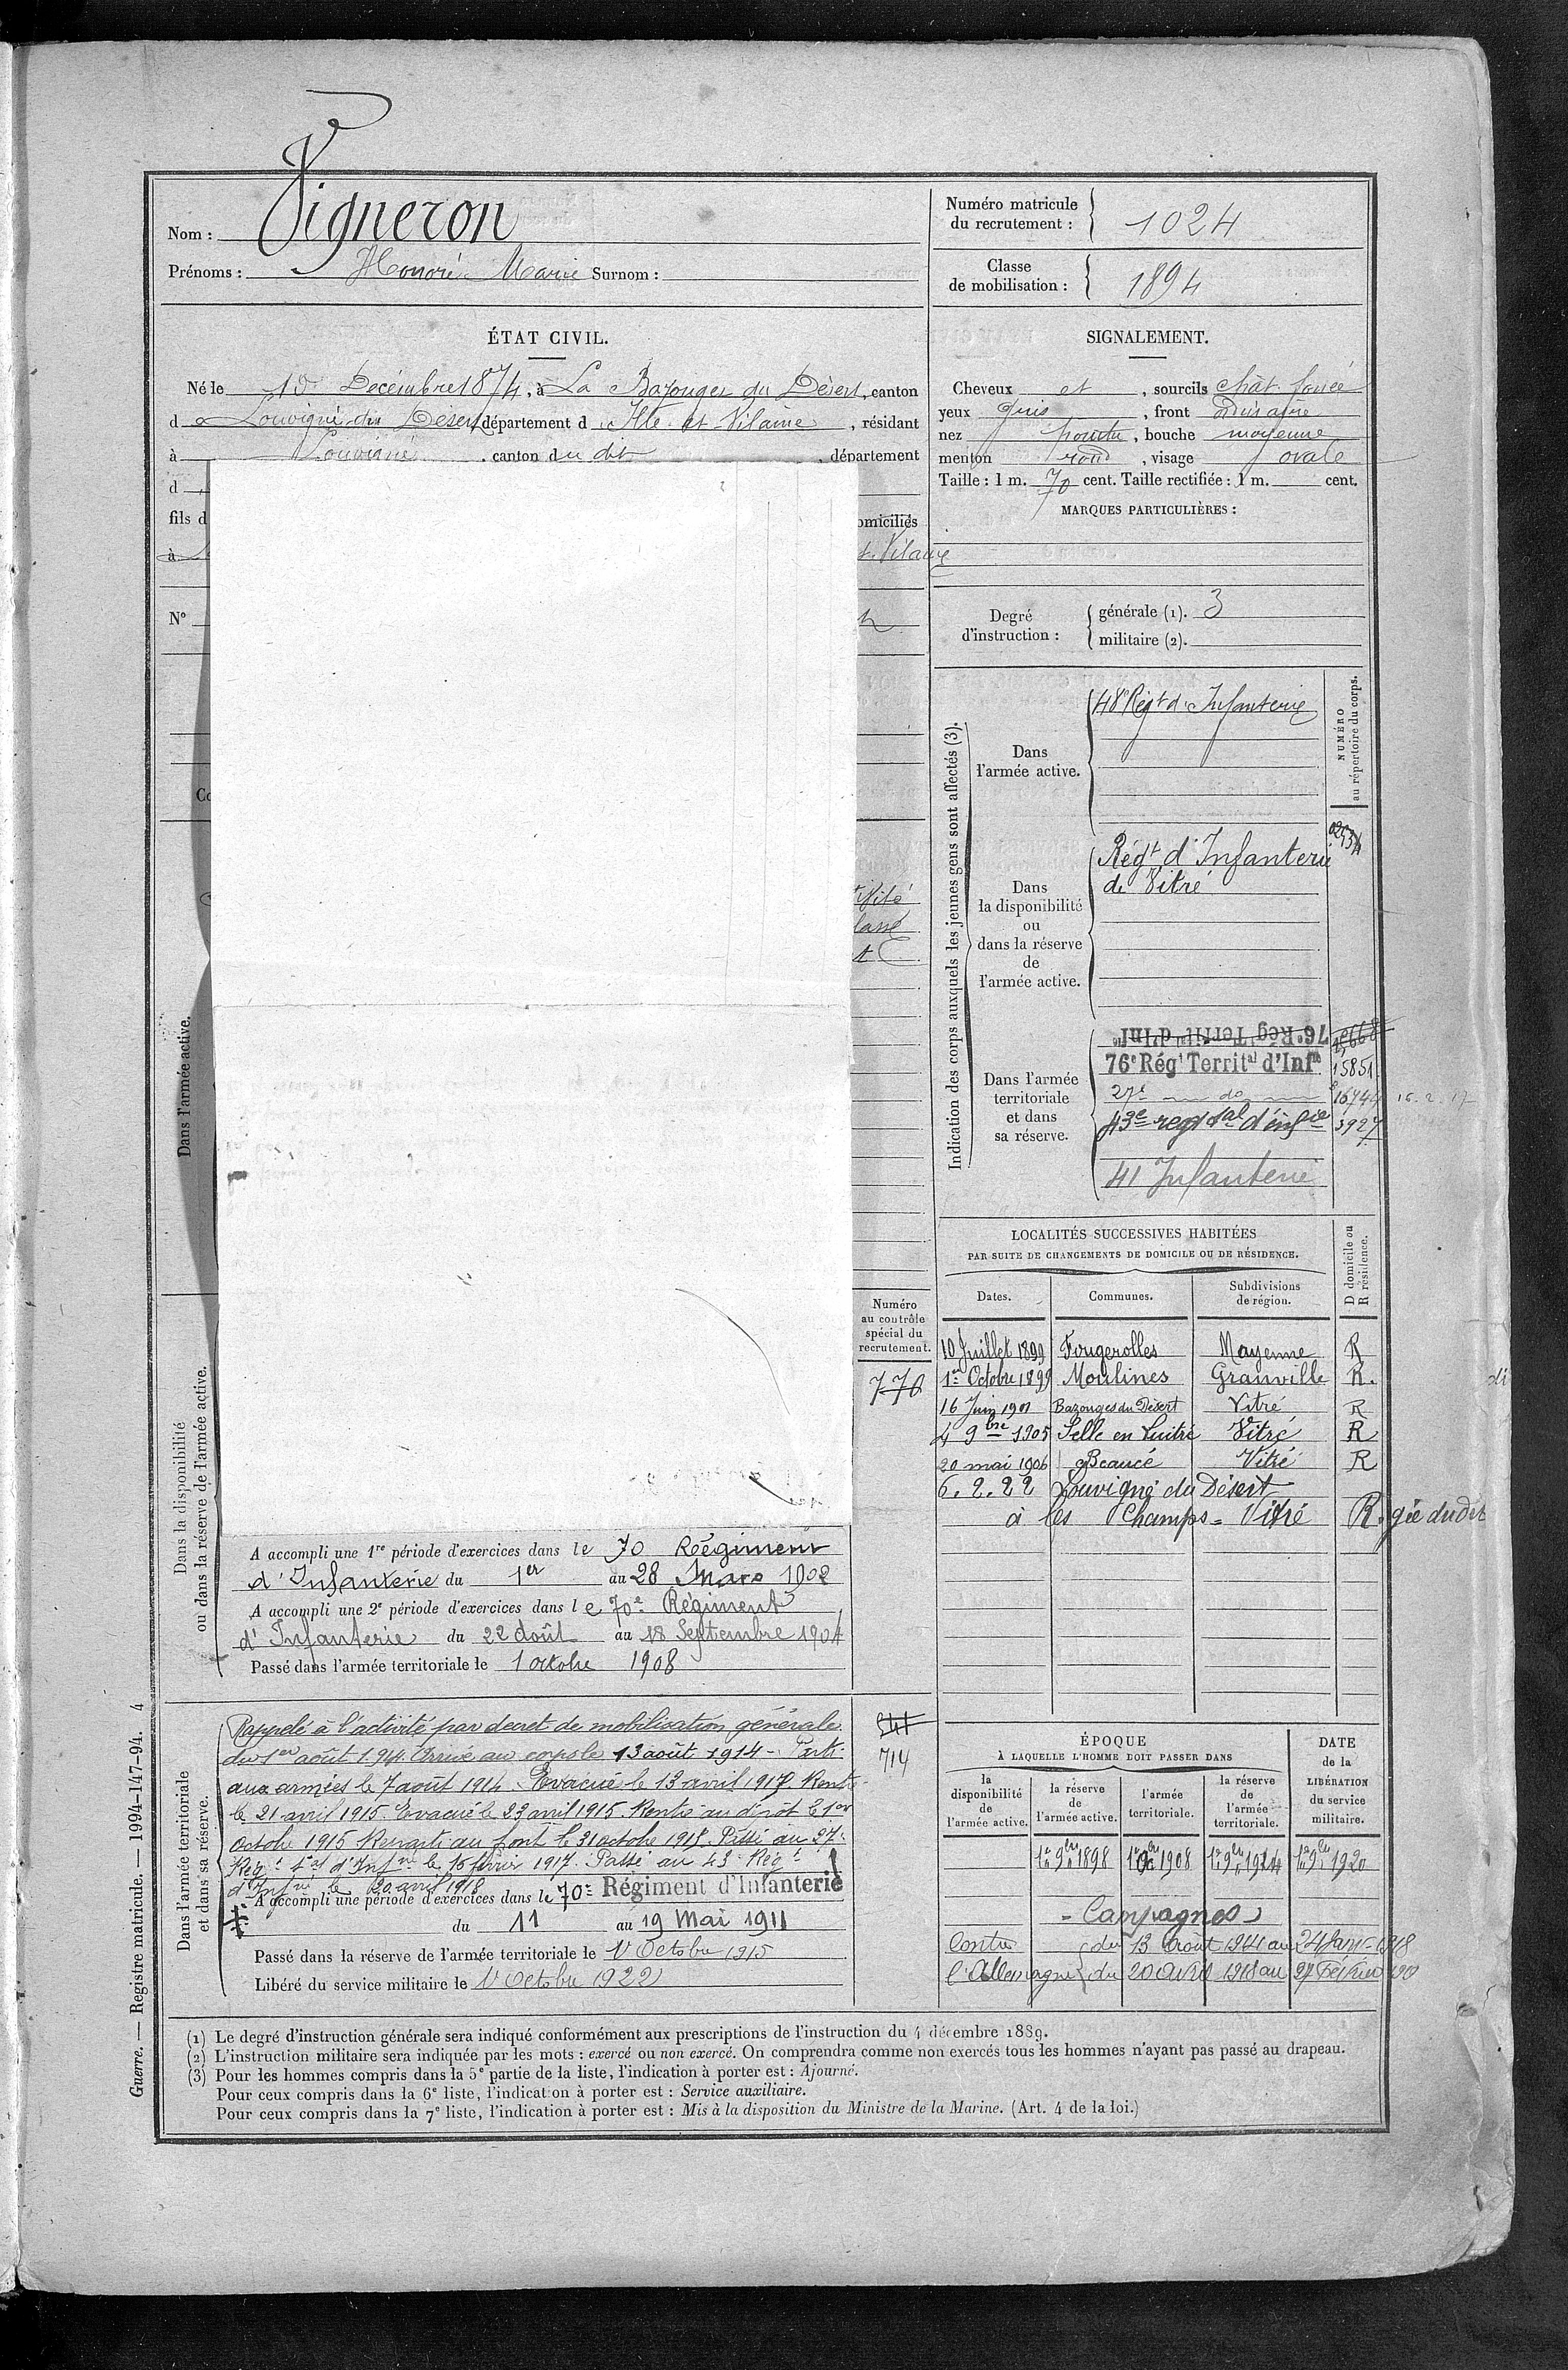 Vigneron
Nom :
Prénoms : Honoré Marie Surnom :
Numéro matricule
du recrutement : 1024
Classe
de mobilisation : 1894
ÉTAT CIVIL.
Né le Décembre 1874, à La Bazouges du Désert, canton
d Louvigné du Désert, département d Ille et Vilaine, résidant
à Louvigné, canton du dit, département
d
fils d omiciliés
à t Vilaine
N°
Co
tivité
lasse
Dans l'armée active.
SIGNALEMENT.
Cheveux et, sourcils chât. foncé
yeux gris, front ordinaire
nez pointu, bouche moyenne
menton rond, visage ovale
Taille : 1 m. 70 cent. Taille rectifiée : 1 m. cent.
MARQUES PARTICULIÈRES :
Degré
d'instruction :
générale (1). 3
militaire (2).
Indication des corps auxquels les jeunes gens sont affectés (3).
NUMÉRO
au répertoire du corps.
Dans
l'armée active.
48e Régt d'Infanterie
Dans
la disponibilité
ou
dans la réserve
de
l'armée active.
Régt d'Infanterie
de Vitré
Dans l'armée
territoriale
et dans
sa réserve.
76e Régt Territal d'Inf
76e Régt Territal d'Infie 15851
27e do 16744 16.2.17
43e regt tal d'infie 3927
41 Infanterie
LOCALITÉS SUCCESSIVES HABITÉES
PAR SUITE DE CHANGEMENTS DE DOMICILE OU DE RÉSIDENCE.
D domicile ou
R résidence.
Dates. Communes. Subdivisions
de région.
10 Juillet 1899 Fougerolles Mayenne R
1er Octobre 1899 Moulines Granville R.
16 Juin 1901 Bazouges du Désert Vitré R
4 9bre 1905 Selle en Luitré Vitré R
20 mai 1906 Beaucé Vitré R
6.2.22 Louvigné du Désert
à les Champs - Vitré R. gie dudit
di
Numéro
au contrôle
spécial du
recrutement.
776
Dans la disponibilité
ou dans la réserve de l'armée active.
A accompli une 1re période d'exercices dans le 70 Régiment
d'Infanterie du 1er au 28 Mars 1902
A accompli une 2e période d'exercices dans le 70e Régiment
d'Infanterie du 22 août au 18 Septembre 1904
Passé dans l'armée territoriale le 1 octobre 1908
Dans l'armée territoriale
et dans sa réserve.
Rappelé à l'activité par decret de mobilisation générale
du 1er août 1914. Arrivé au corps le 13 août 1914 - Parti
aux armées le 7 août 1914. Evacué le 13 avril 1917. Rentré
le 21 avril 1915. Evacué le 23 avril 1915. Rentré au dépôt le 1er
octobre 1915 Reparti au front le 31 octobre 1915. Passé au 27e
Régt tal d'Infrie le 16 février 1917. Passé au 43 Régt
d'Infrie le 20 avril 1918
A accompli une période d'exercices dans le 70e Régiment d'Infanterie
du 11 au 19 Mai 1911
Passé dans la réserve de l'armée territoriale le 1er Octobre 1915
Libéré du service militaire le 1er Octobre 1922
341
714
ÉPOQUE
À LAQUELLE L'HOMME DOIT PASSER DANS
DATE
de la
LIBÉRATION
du service
militaire.
la
disponibilité
de
l'armée active.
la réserve
de
l'armée active.
l'armée
territoriale.
la réserve
de
l'armée
territoriale.
1er 9bre 1898 1er 9bre 1908 1er 9bre 1914 1er 9bre 1920
- Campagnes
Contre du 13 Août 1914 au 24 Janv. 1918
l'Allemagne du 20 Avril 1918 au 27 Février
(1) Le degré d'instruction générale sera indiqué conformément aux prescriptions de l'instruction du 4 décembre 1889.
(2) L'instruction militaire sera indiquée par les mots : exercé ou non exercé. On comprendra comme non exercés tous les hommes n'ayant pas passé au drapeau.
(3) Pour les hommes compris dans la 5e partie de la liste, l'indication à porter est : Ajourné.
Pour ceux compris dans la 6e liste, l'indication à porter est : Service auxiliaire.
Pour ceux compris dans la 7e liste, l'indication à porter est : Mis à la disposition du Ministre de la Marine. (Art. 4 de la loi.)
Guerre. — Registre matricule. — 1994-147-94. 4